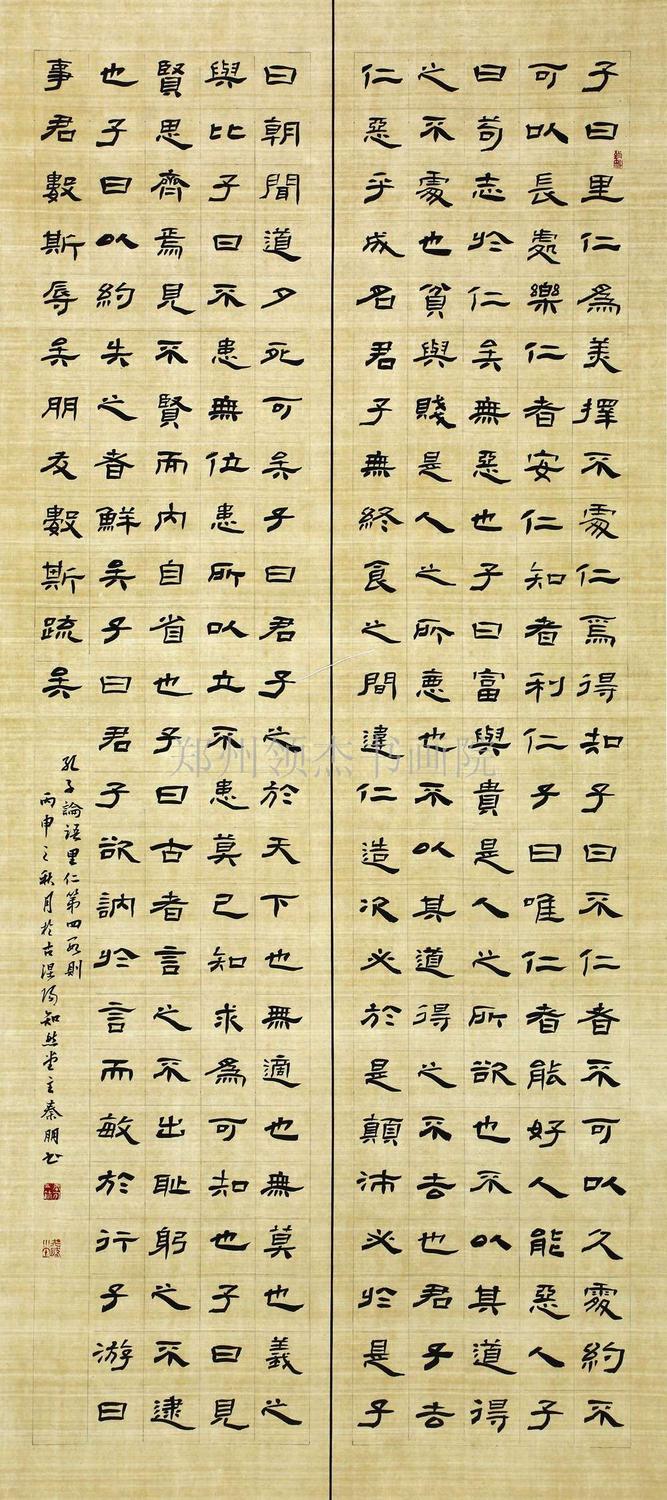 子曰里仁爲美擇不處仁焉得知子曰不仁者不可以久處約不
可以長處樂仁者安仁知者利仁子曰唯仁者能好人能惡人子
曰苟志於仁矣無惡也子曰富與貴是人之所欲也不以其道得
之不處也貧與賤是人之所惡也不以其道得之不去也君子去
仁惡乎成名君子無終食之間違仁造次必於是顛沛必於是子
曰朝聞道夕死可矣子曰君子之於天下也無適也無莫也義之
與比子曰不患無位患所以立不患莫己知求爲可知也子曰見
賢思齊焉見不賢而內自省也子曰古者言之不出耻躬之不逮
也子曰以約失之者鮮矣子曰君子欲訥於言而敏於行子游曰
事君數斯辱矣朋友數斯疏矣
孔子論語里仁第四則
丙申之秋月於古陽知然堂主秦朋书
郑州领杰书画院